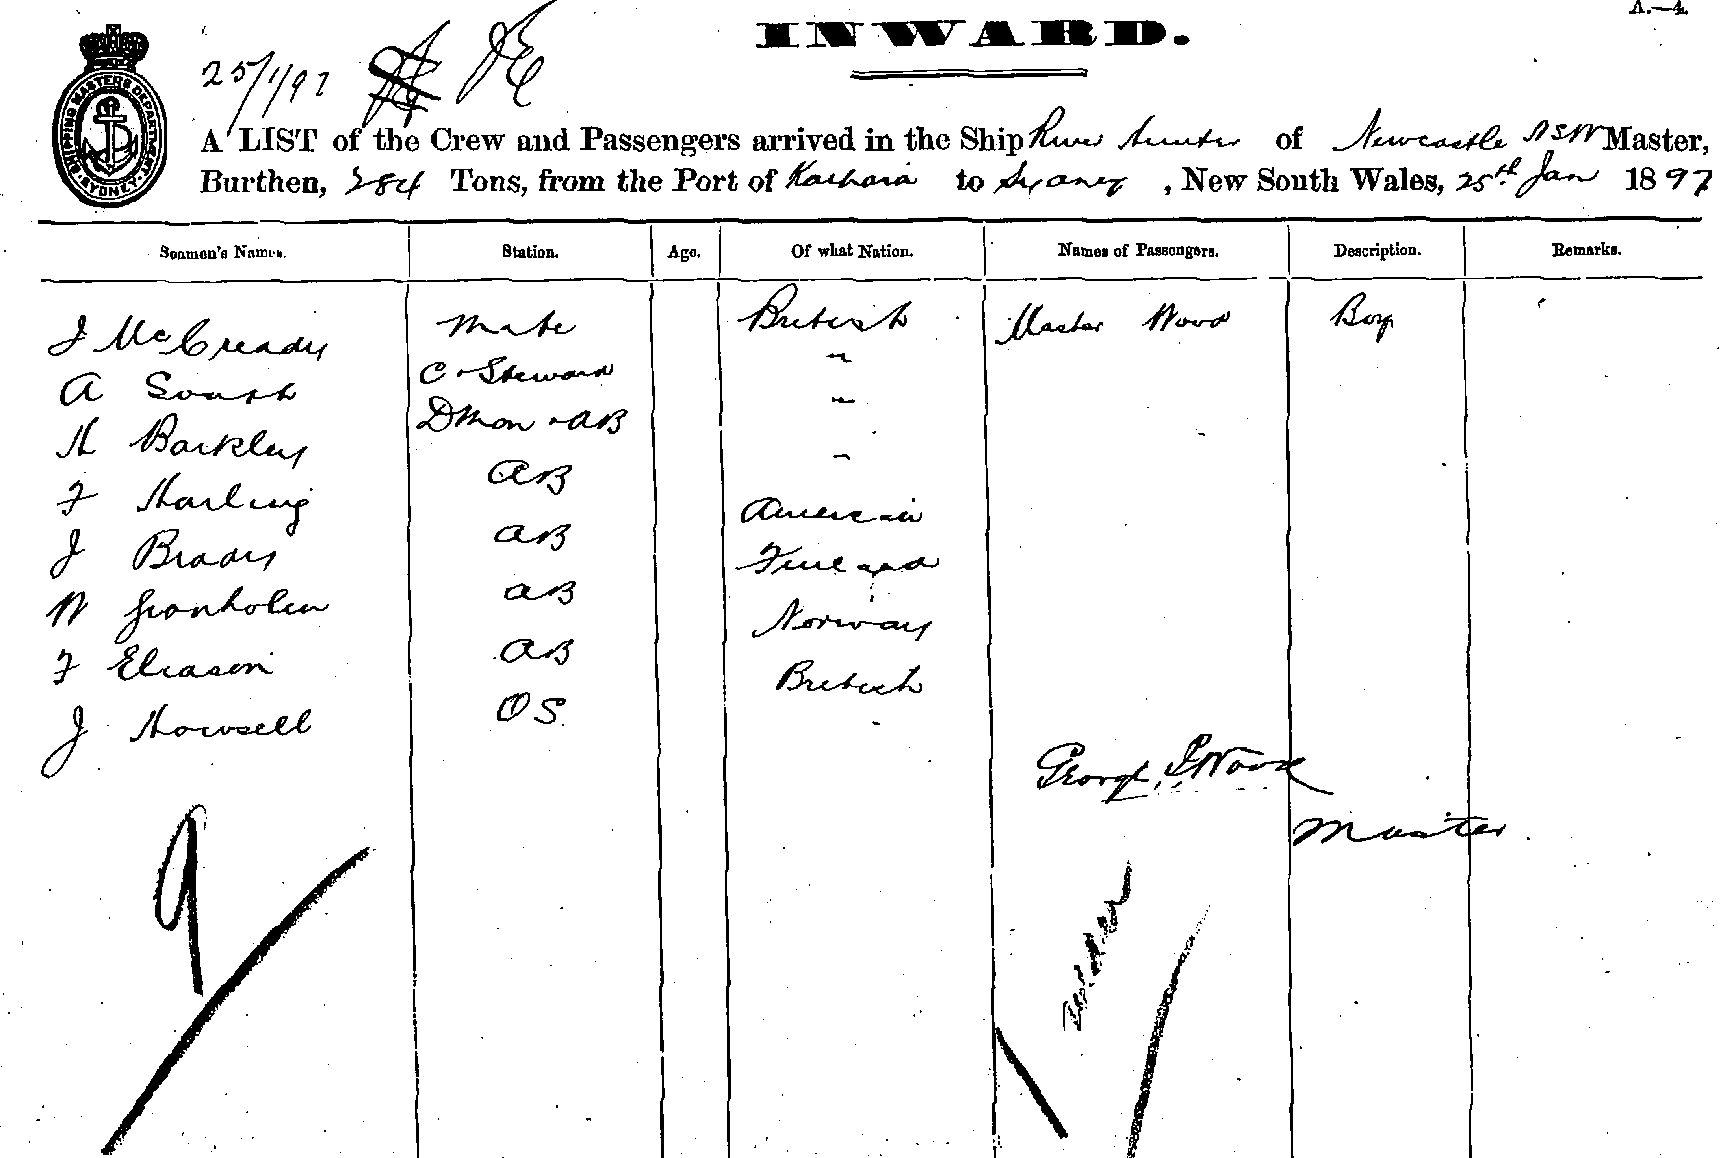 A.—4.
INWARD.
25/1/97 JE
SHIPPING MASTERS DEPARTMENT SYDNEY
A LIST of the Crew and Passengers arrived in the Ship River Hunter of Newcastle NSW Master,
Burthen, 284 Tons, from the Port of to Sydney, New South Wales, 25th Jan 1897
Seamen's Names. Station. Age. Of what Nation. Names of Passengers. Description. Remarks.
J McCready Mate British Master Wood Boy
A South C & Steward "
H Barkley DMan & AB "
F Harling AB "
J Brady AB American
W Granholm AB Finland
F Eliason AB Norway
J Howsell OS British
George Wood
Master
9